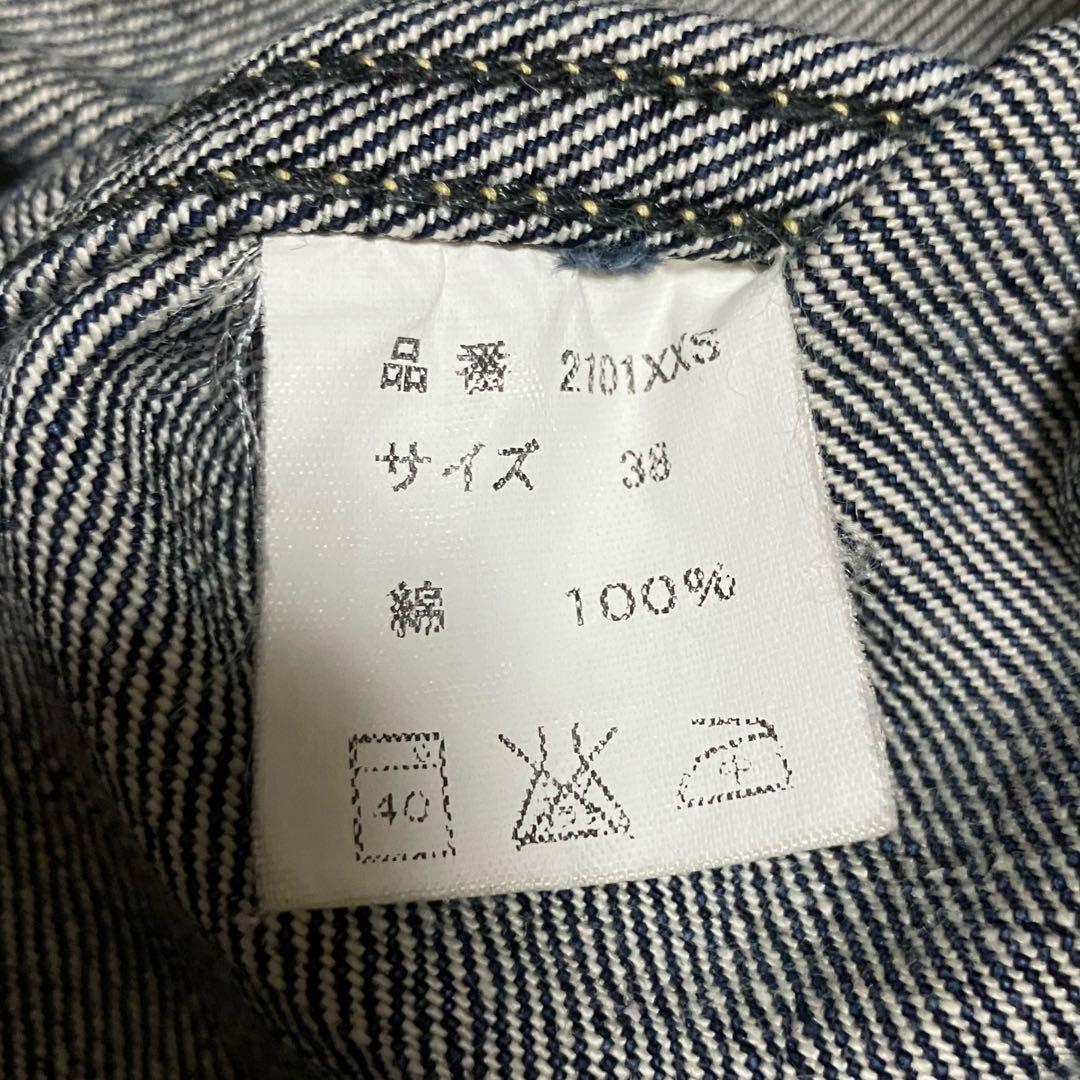 品番 2101XXS
サイズ 38
綿 100%
40